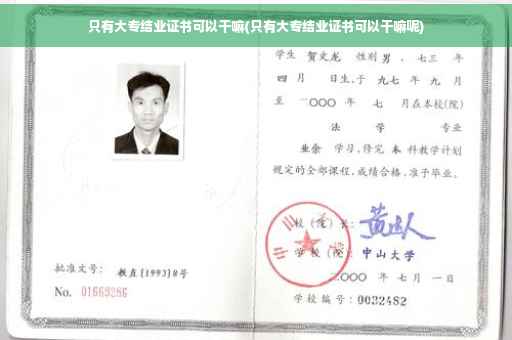 只有大专结业证书可以干嘛(只有大专结业证书可以干嘛呢)
学生 贺文龙 性别 男 、七三 年
四 月 日生,于 九七 年 九 月
至 二〇〇〇 年 七 月在本校(院)
法 学 专业
业余 学习,修完 本 科教学计划
规定的全部课程,成绩合格,准予毕业。
校(院)长:
学校(院): 中山大学
二〇〇〇 年 七 月 一 日
批准文号: 教直[1993]8号
No. 01669286
学校编号: 0032482